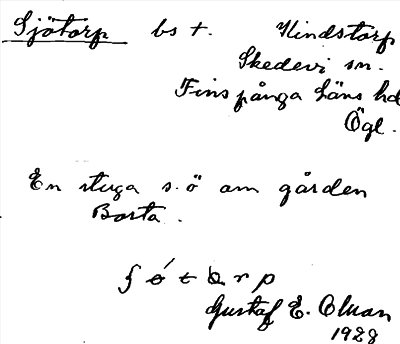 Sjötorp bs t. Hindstorp
Skedevi sn.
Finspånga läns hd
Ögl.
En stuga s.ö om gården
Borta.
Gustaf E. Olman
1928